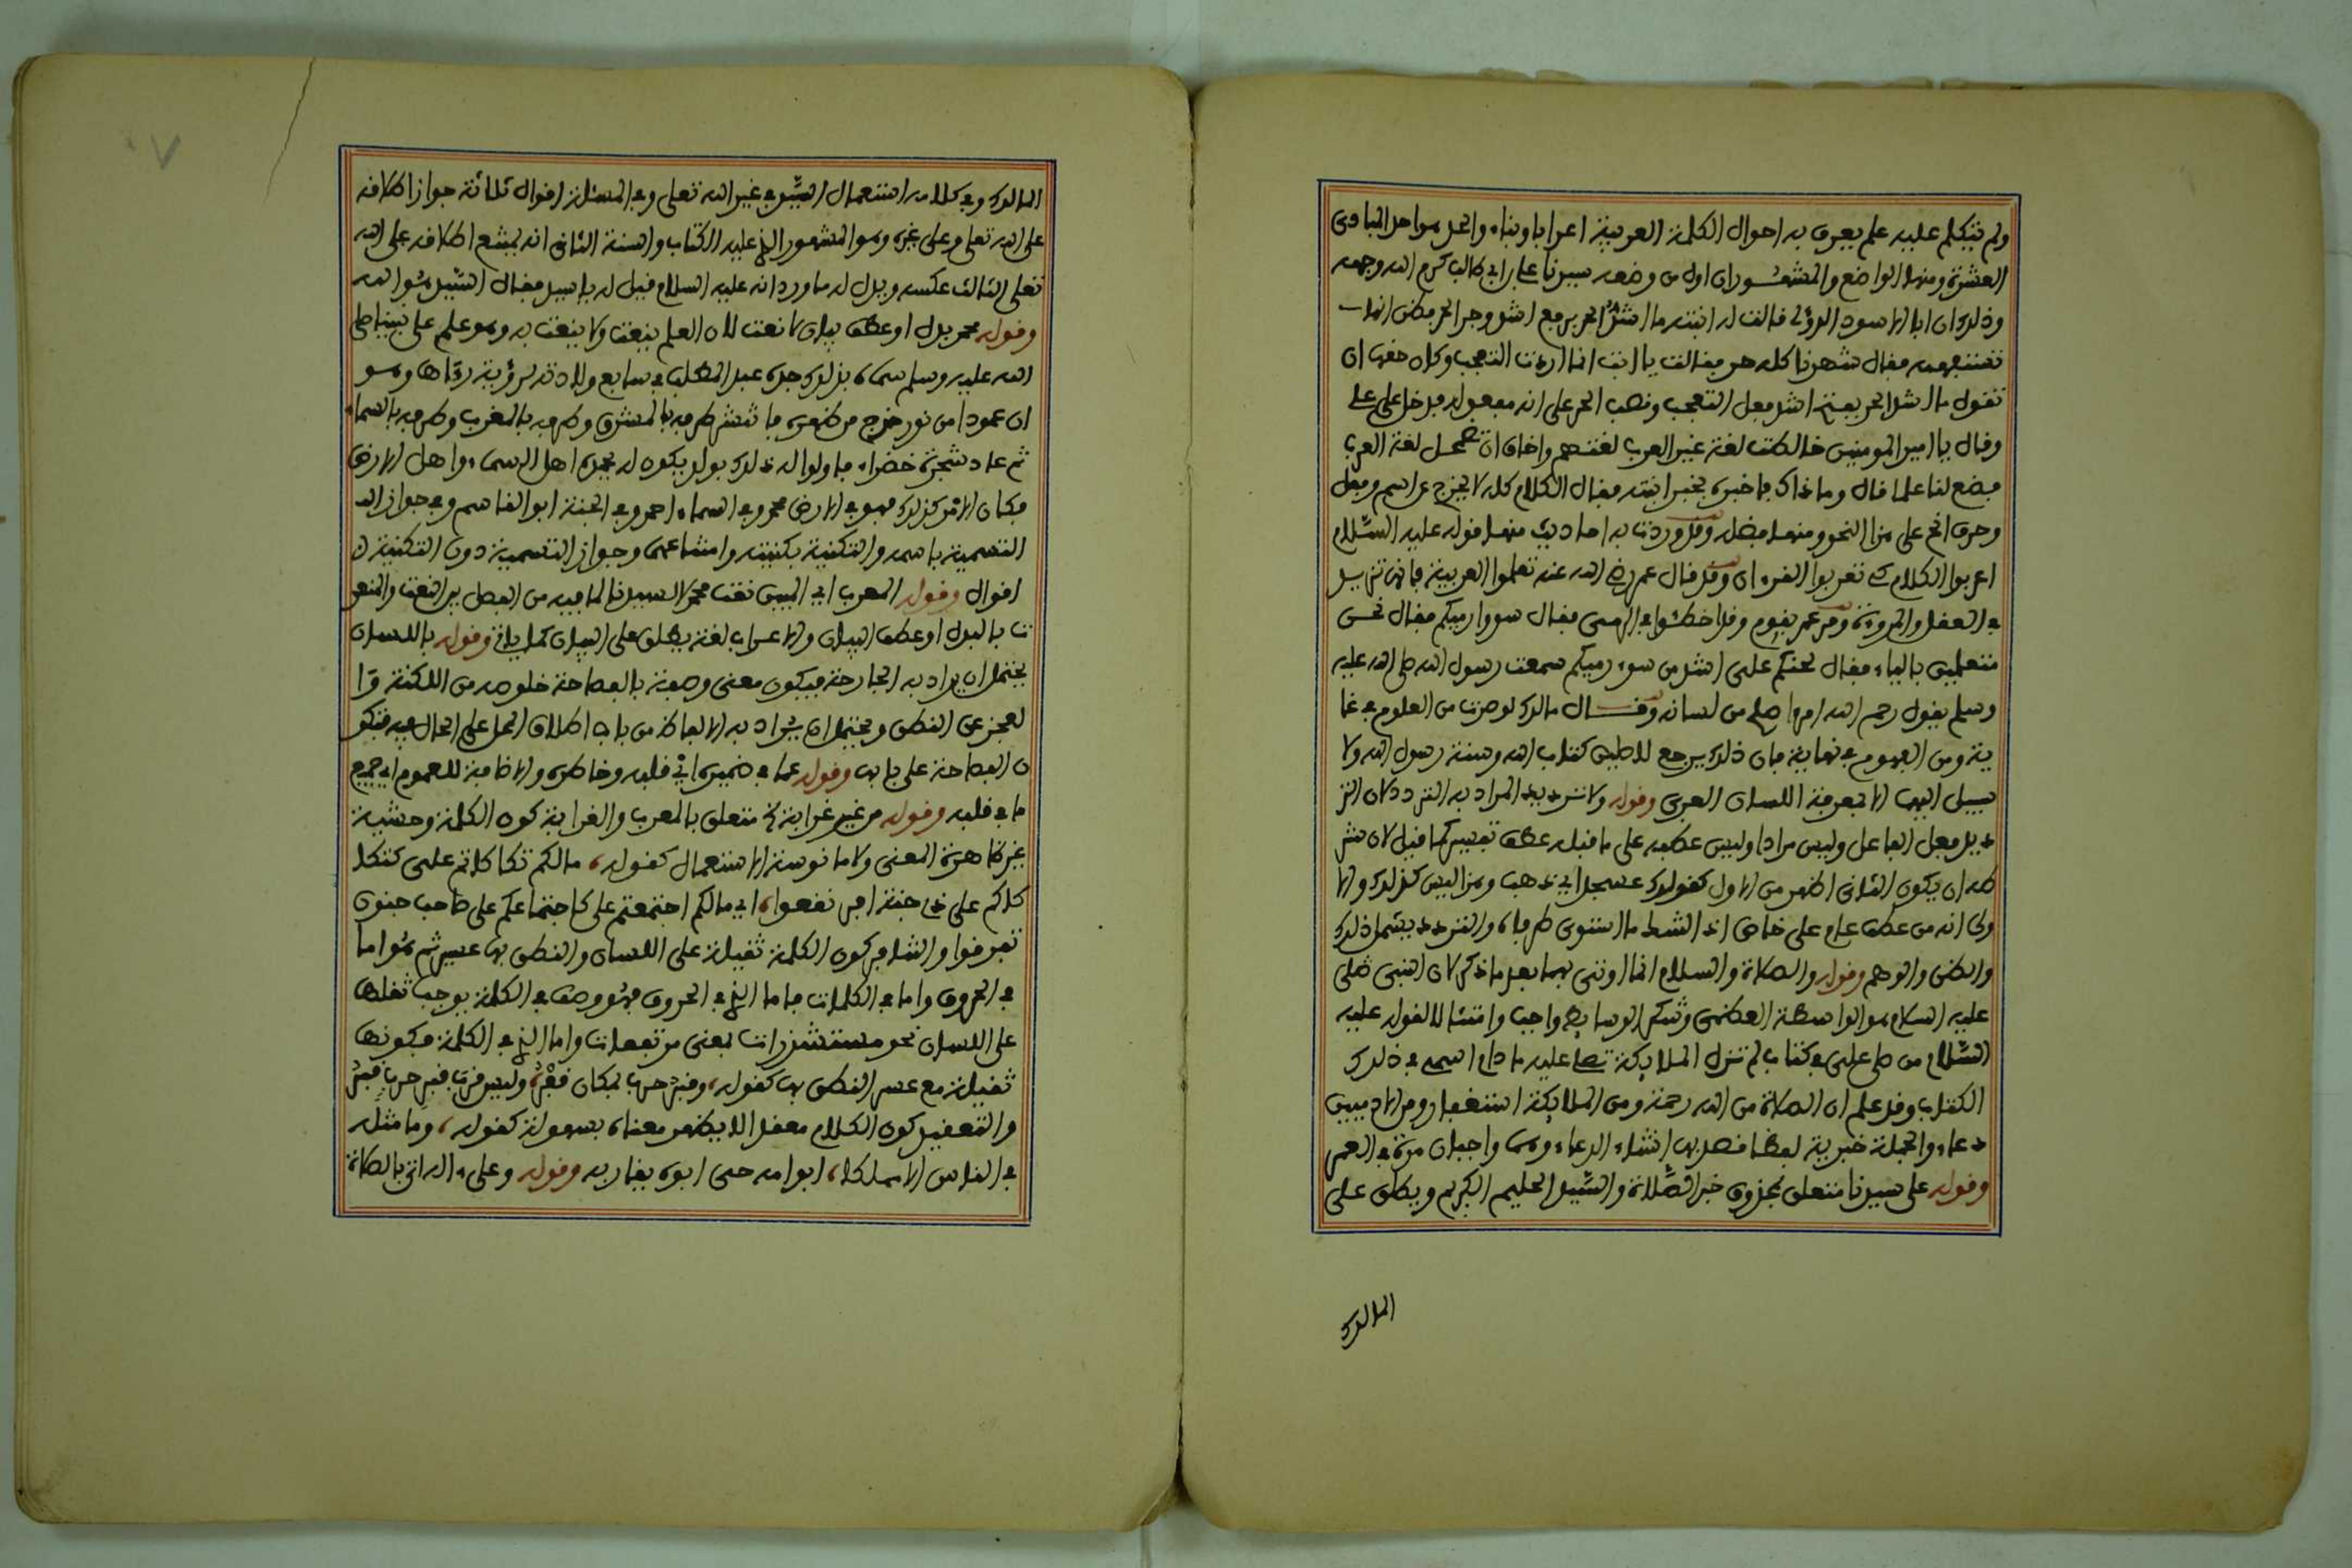 ولم يتكلم عليه علم يعرف به احوال الكلمة العربية اعرابا وبناء والحد هو احد المبادئ
العشرة ومنها الواضع والمشهور ان اول من وضعه سيدنا علي ابن ابي طالب كرم الله وجهه
وذلك ان ابا الاسود الدؤلي قالت له ابنته ما اشدُّ الحر برفع اشد وجر الحر فظن انها
تستفهمه فقال شهر ناجر فقالت يا ابت انما اردت التعجب وكان حقها ان
تقول ما اشد الحر بفتح اشد فعل التعجب ونصب الحر على انه مفعول به فدخل على علي
وقال يا امير المومنين خالطت لغة غير العرب لغتهم واخاف ان تضمحل لغة العرب
فضع لنا علما قال وما ذاك فاخبره بخبر ابنته فقال الكلام كله لا يخرج عن اسم وفعل
وحرف انح على هذا النحو ومنها فضله وقد وردت به احاديث منها قوله عليه السلام
اعربوا الكلام كي تعربوا القرءان وقد قال عمر رضي الله عنه تعلموا العربية فانها تزيد
في العقل والمروءة ومر عمر بقوم وقد اخطئوا في الرمي فقال سووا رميكم فقال نحن
متعلمين بالياء فقال لحنكم علي اشد من سوء رميكم سمعت رسول الله صلى الله عليه
وسلم يقول رحم الله امرءا اصلح من لسانه وقال مالك لو صرت من العلوم في غا
ية ومن الفهوم في نهاية فان ذلك يرجع لاصلين كتاب الله وسنة رسول الله ولا
سبيل اليهما الا بمعرفة اللسان العربي وقوله ولا ترديد المراد به التردد لان التر
ديد فعل الفاعل وليس مرادا وليس عطفه على ما قبله عطف تفسير كما قيل لان شر
طه ان يكون الثاني اظهر من الاول كقولك عسجد اي ذهب وهذا ليس كذلك والا
ولى انه من عطف عام على خاص اذ الشك ما استوى طرفاه والتردد يشمل ذلك
والظن والوهم وقوله والصلاة والسلام انما اوتي بهما بعد ما ذكر لان النبي صلى
عليه السلام هو الواسطة العظمى وشكر الوسايط واجب وامتثالا لقوله عليه
السلام من صلى علي في كتاب لم تزل الملايكة تصلي عليه ما دام اسمي في ذلك
الكتاب وقد علم ان الصلاة من الله رحمة ومن الملايكة استغفار ومن الادميين
دعاء والجملة خبرية لفظا قصد بها انشاء الدعاء وهما واجبان مرة في العمر
وقوله على سيدنا متعلق بمحذوف خبر الصلاة والسيد الحليم الكريم ويطلق على
المالك
المالك وفي كلامه استعمال السيد في غير الله تعلى وفي المسئلة اقوال ثلاثة جواز اطلاقه
على الله تعلى وعلى غيره وهو المشهور الذي عليه الكتاب والسنة الثاني انه يمتنع اطلاقه على الله
تعلى الثالث عكسه ويدل له ما ورد انه عليه السلام قيل له يا سيد فقال السيد هو الله
وقوله محمد بدل او عطف بيان لا نعت لان العلم ينعت ولا ينعت به وهو علم على نبينا صلى
الله عليه وسلم سماه بذلك جده عبد المطلب في سابع ولادته لرؤية رءاها وهو
ان عمودا من نور خرج من ظهره فانتشر طرفه بالمشرق وطرفه بالمغرب وطرفه بالسماء
ثم عاد شجرة خضراء فاولوا له ذلك بولد يكون له يحمده اهل السماء واهل الارض
فكان الامر كذلك فهو في الارض محمد وفي السماء احمد وفي الجنة ابو القاسم وفي جواز
التسمية باسمه والتكنية بكنيته وامتناعهما وجواز التسمية دون التكنية
اقوال وقوله المعرب اي المبين نعت محمد لا لسيدنا لما فيه من الفصل بين النعت والمنعو
ت بالبدل او عطف البيان والاعراب لغة يطلق على البيان كما ياتي وقوله باللسان
يحتمل ان يراد به الجارحة فيكون معنى وصفه بالفصاحة خلوصه من اللكنة وا
لعجز عن النطق ويحتمل ان يراد به الالفاظ من باب اطلاق المحل على الحال فيه فتكو
ن الفصاحة على بابها وقوله عما في ضميره اي في قلبه وخاطره والاضافة للعموم اي جميع
ما في قلبه وقوله من غير غرابة الخ متعلق بالمعرب والغرابة كون الكلمة وحشية
غير ظاهرة المعنى ولا مانوسة الاستعمال كقوله، ما لكم تكاكاتم علي كتكا
كاكم على ذي جنة افرنقعوا، اي ما لكم اجتمعتم علي كاجتماعكم على صاحب جنون
تفرقوا والتنافر كون الكلمة ثقيلة على اللسان والنطق بها عسير ثم هو اما
في الحروف واما في الكلمات فاما الذي في الحروف فهو وصف في الكلمة يوجب ثقلها
على اللسان نحو مستشزرات بمعنى مرتفعات واما الذي في الكلمة فكونها
ثقيلة مع عسر النطق بها كقوله، وقبرُ حرب بمكان قفرٌ، وليس قرب قبر حرب قبرُ
والتعقيد كون الكلام معقدا لا يظهر معناه بسهولة كقوله، وما مثله
في الناس الا مملكا، ابو امه حي ابوه يقاربه وقوله وعلى ءاله اتى بالصلاة